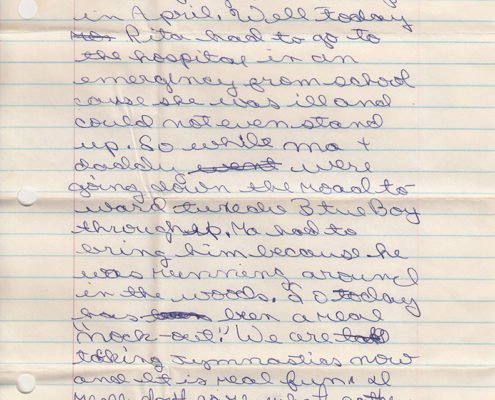 in April. Well today
Rita had to go to
the hospital in an
emergency from school
cause she was ill and
could not even stand
up. So while ma +
daddy went were
going down the road to
ward Blue Boy
through up. Ma had to
bring him because he
was running around
in the woods. So today
has been a real
"nock-out"! We are
taking gymnastics now
and it is real fun. I